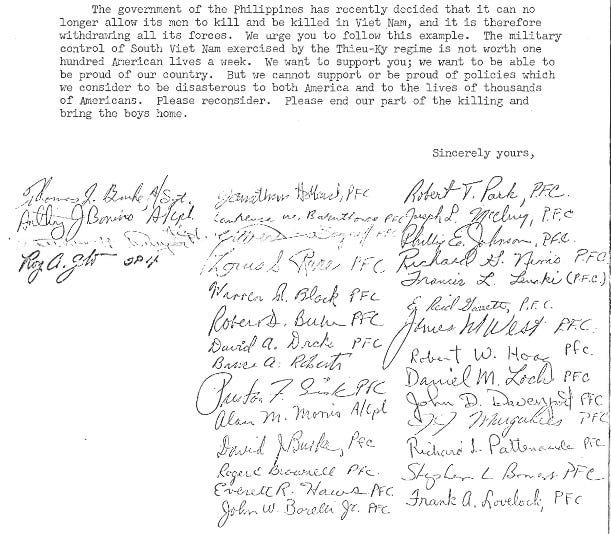 The government of the Philippines has recently decided that it can no
longer allow its men to kill and be killed in Viet Nam, and it is therefore
withdrawing all its forces. We urge you to follow this example. The military
control of South Viet Nam exercised by the Thieu-Ky regime is not worth one
hundred American lives a week. We want to support you; we want to be able to
be proud of our country. But we cannot support or be proud of policies which
we consider to be disastrous to both America and to the lives of thousands
of Americans. Please reconsider. Please end our part of the killing and
bring the boys home.
Sincerely yours,
Thomas J. A/Sgt.
J A/Cpl
Roy A. SP 4
Jonathan PFC
Lawrence W. PFC
PFC
Thomas S PFC
Warren A. Black PFC
Robert D. PFC
David A. Drake PFC
Bruce A. Roberts
Preston F. PFC
Alan M. Morris A/Cpl
David J. Burke, PFC
Roger C Brownell PFC.
Everett R. Haws PFC
John W. Borelli Jr. PFC.
Robert T. Park, PFC.
Joseph L. PFC
Phillip E. Johnson, PFC.
Richard G. Nimis PFC
Francis L. (PFC.)
E Reid P.F.C.
James M West PFC.
Robert W. Hoag PFC.
Daniel M. Loch PFC
John D. Davenport PFC
PFC
Richard L. Pattenaude PFC
Stephen L PFC.
Frank A. Lovelock, PFC